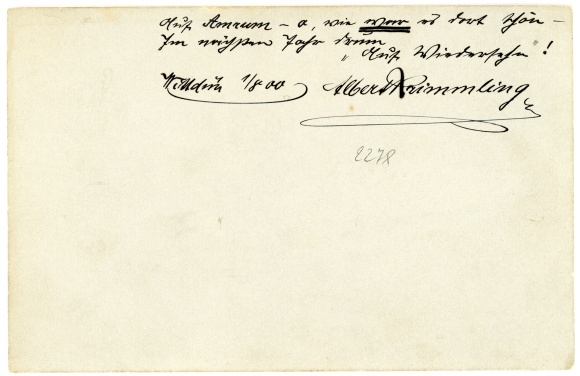 Auf Amrum – o, wie war es dort schön –
Im nächsten Jahr drum
„Auf Wiedersehn“!
Wittdün 1/8 00 Albert Krimmling
2278